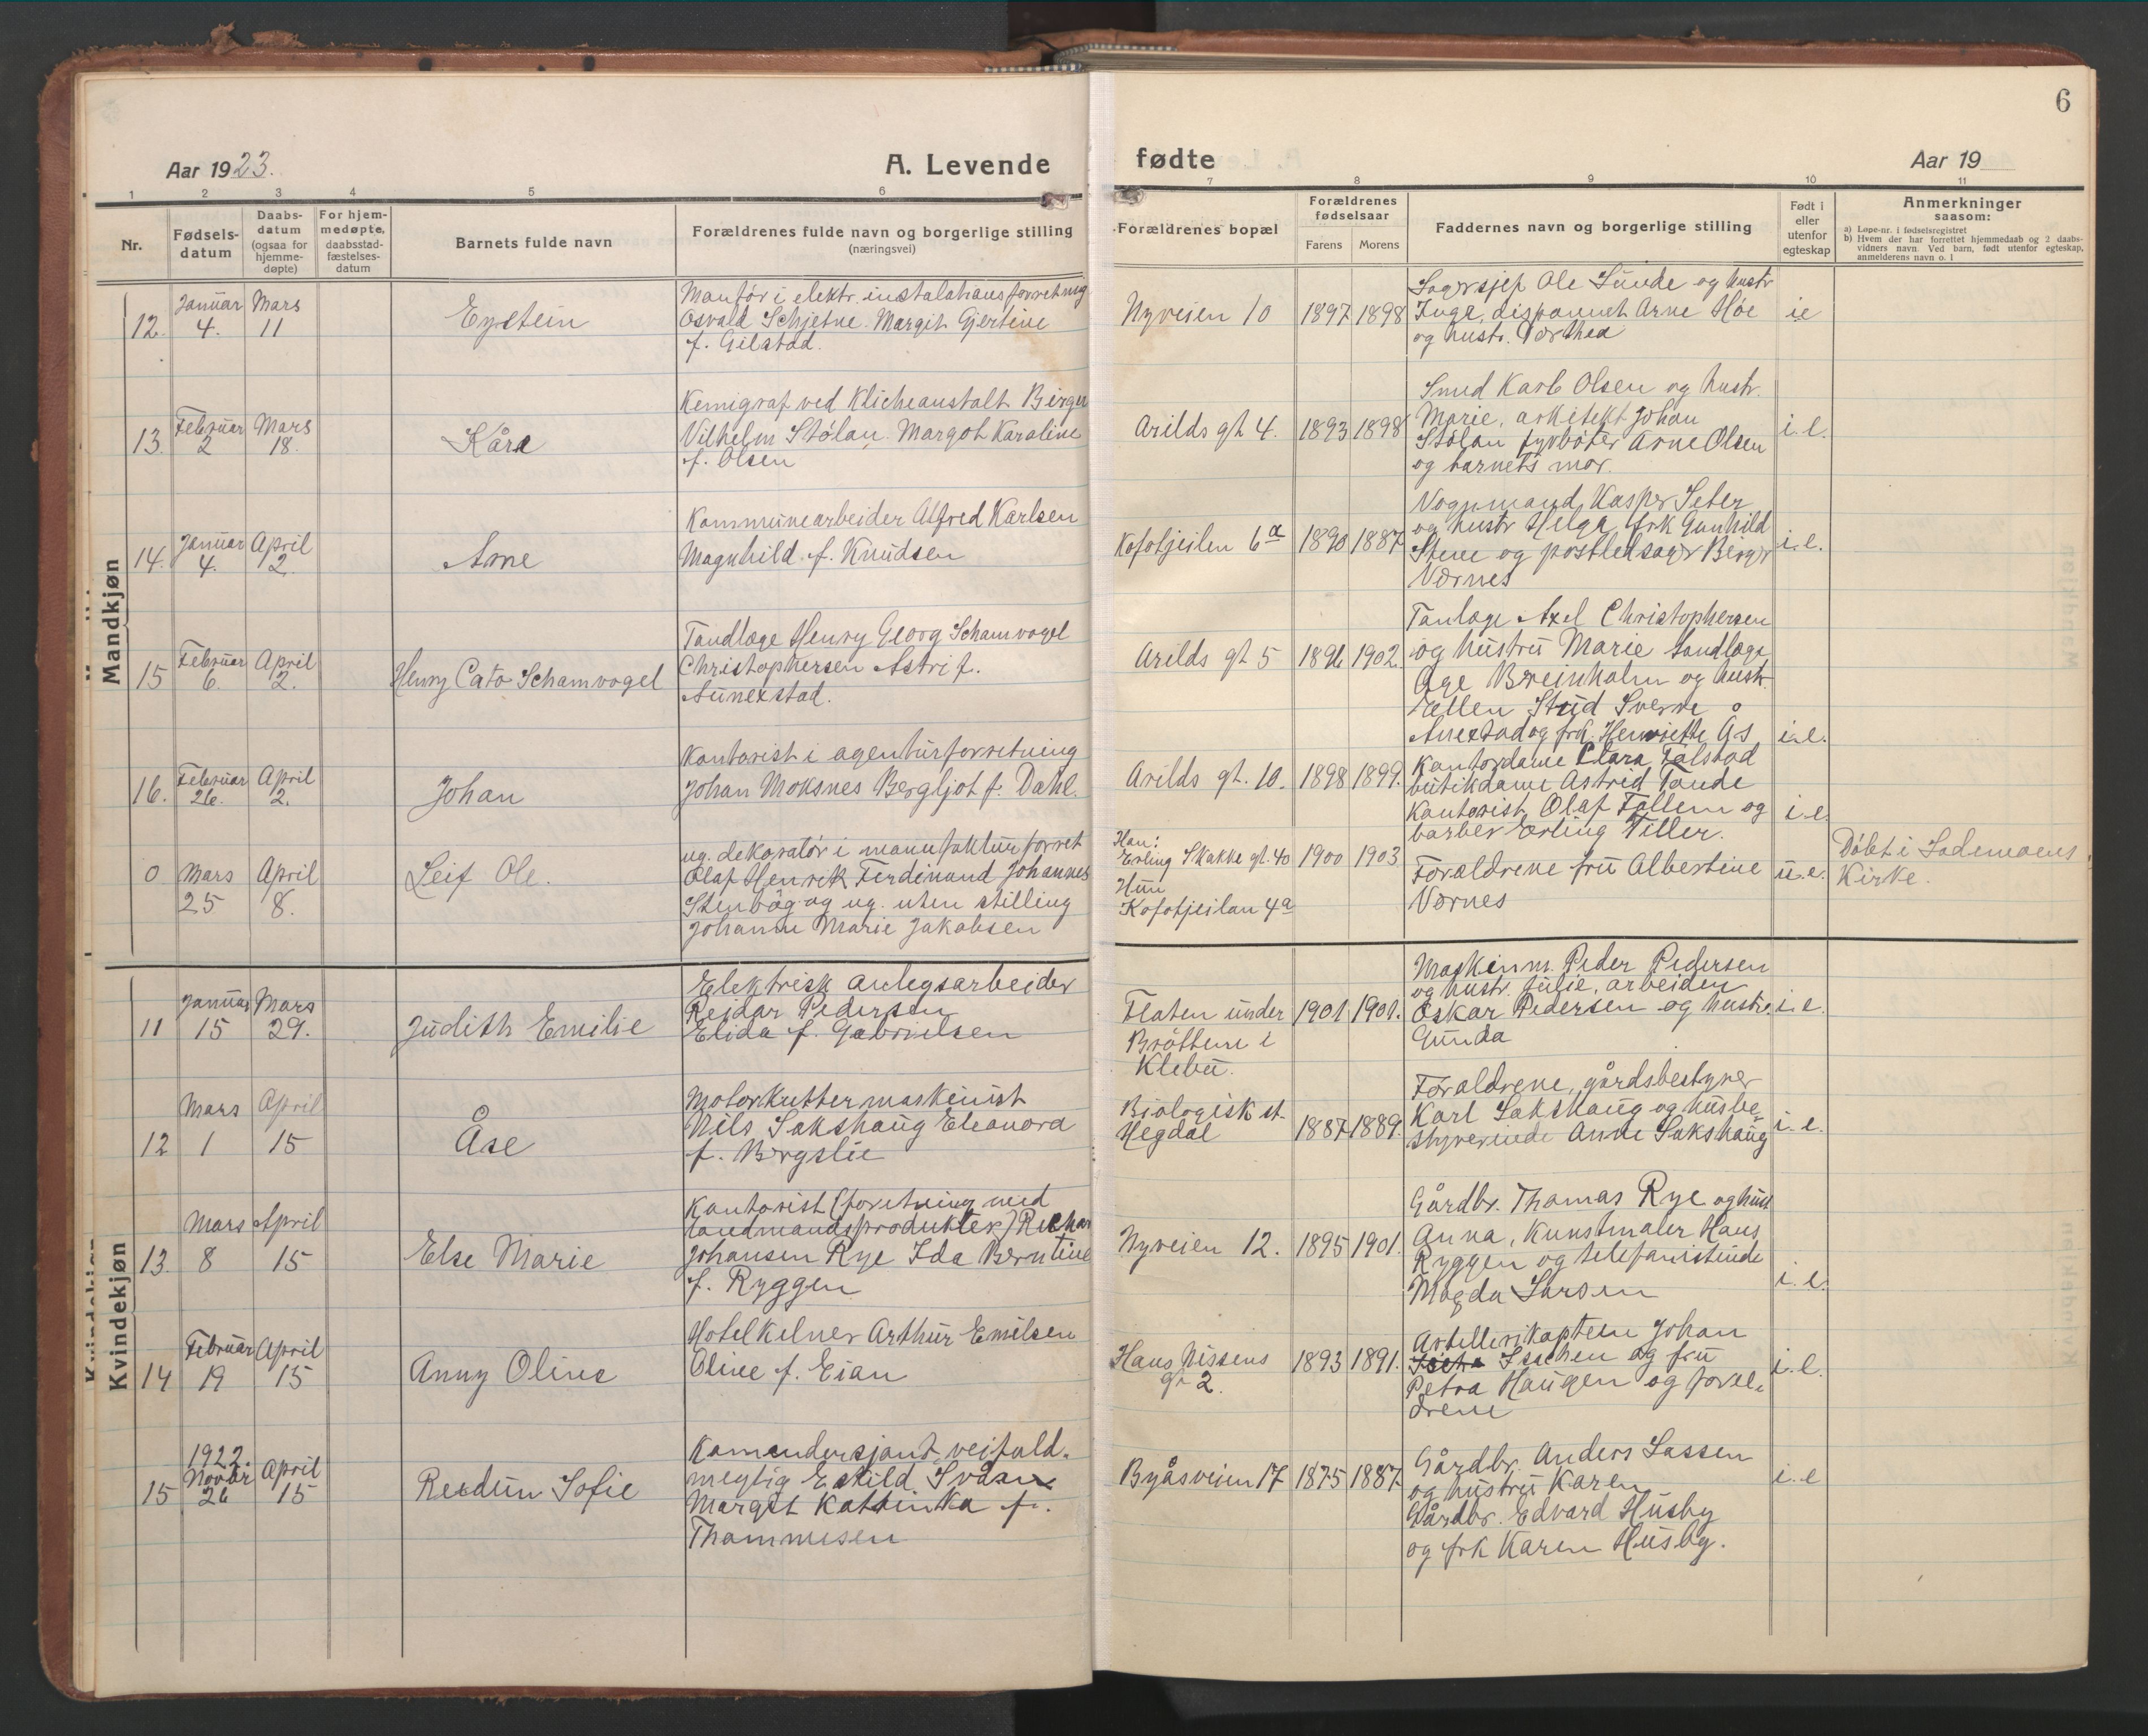 6
Aar 1923.
A. Levende
fødte
Aar 19
1 2 3 4 5 6 7 8 9 10 11
Nr.
Fødsels-
datum
Daabs-
datum
(ogsaa for
hjemme-
døpte)
For hjem-
medøpte,
daabsstad-
fæstelses-
datum
Barnets fulde navn
Forældrenes fulde navn og borgerlige stilling
(næringsvei)
Forældrenes bopæl
Forældrenes
fødselsaar
Farens Morens
Faddernes navn og borgerlige stilling
Født i
eller
utenfor
egteskap
Anmerkninger
saasom:
a) Løpe-nr. i fødselsregistret
b) Hvem der har forrettet hjemmedaab og 2 daabs-
vidners navn. Ved barn, født utenfor egteskap,
anmelderens navn o. l
Mandkjøn
12. Januar 4. Mars 11
Eystein
Montør i elektr. instalationsforretnig
Osvald Schjetne. Margit Gjertine
f. Gilstad.
Nyveien 10
1897 1898
Lagersjef Ole Sunde og hustr
Inga, disponent Arne Høe
og hustr. Dorthea
i e
13. Februar 2 Mars 18.
Kåre
Kemigraf ved Klicheanstalt Birger
Vilhelm Stølan. Margot Karoline
f. Olsen
Arilds gt 4.
1893 1898
Smed Karl Olsen og hustr.
Marie, arkitekt Johan
Stølan fyrbøter Arne Olsen
og barnets mor.
i. e.
14. Januar 4. April 2.
Arne
Kommunearbeider Alfred Karlsen
Magnhild f. Knudsen
Kofotjeilen 6a
1890 1887
Vognmand Kasper Seter
og hustr Helga, frk Gunhild
Stene og postledsager Birger
Værnes
i. e.
15 Februar 6. April 2.
Henry Cato Schamvogel
Tandlæge Henry Georg Schamvogel
Christophersen Astri f.
Aunexstad.
Arilds gt 5
1896 1902.
Tanlæge Axel Christophersen
og hustru Marie tandlæge
Åge Breinholm og hustr.
Ellen Stud Sverre
Anexstad og frk. Henriette Ås
i. e.
16. Februar 26. April 2.
Johan
Kontorist i agenturforretning
Johan Moksnes Bergljot f. Dahl.
Arilds gt. 10.
1898 1899.
Kontordame Clara Falstad
butikdame Astrid Tande
kontorist Olaf Follem og
barber Erling Tiller.
i. e.
0 Mars 25 April 8.
Leif Ole.
ug. dekoratør i manufakturforret
Olaf Henrik Ferdinand Johannes
Stenbøg og ug. uten stilling
Johanne Marie Jakobsen
Han:
Erling Skakke gt. 40
Hun
Kofotjeilan 4a
1900 1903
Forældrene fru Albertine
Værnes
u. e.
Døbt i Lademoens
Kirke.
Kvindekjøn
11 Januar 15 Mars 29.
Judith Emilie
Elektrisk anlegsarbeider
Reidar Pedersen
Elida f. Gabrielsen
Flaten under
Brøttem i
Klebu.
1901 1901.
Maskinm. Peder Pedersen
og hustr. Julie, arbeiden
Oskar Pedersen og hustr.
Gunda
i. e.
12 Mars 1 April 15
Åse
Motorkuttermaskinist
Nils Sakshaug Eleanora
f. Bergslie
Biologisk st.
Hegdal
1887 1889.
Forældrene, gårdsbestyrer
Karl Sakshaug og husbe-
styrerinde Anne Sakshaug
i. e.
13. Mars 8 April 15
Else Marie
Kontorist (forretning med
landmandsprodukter) Richar
Johansen Rye Ida Berntine
f. Ryggen
Nyveien 12.
1895 1901.
Gårdbr. Thomas Rye og hust
Anna, Kunstmaler Hans
Ryggen og telefonistinde
Magda Larsen
i. e.
14 Februar 19 April 15
Anny Oline
Hotelkelner Arthur Emilsen
Oline f. Eian
Hans Nissens
gt 2.
1893 1891.
Artillerikaptein Johan
Isachsen og fru
Petra Haugen og foræl-
drene
i. e.
15 1922. Novbr 26 April 15
Reidun Sofie
Komendersjant veifuld-
megtig Eskild Svåsn
Margit Kathinka f.
Thommesen
Byåsveien 17
1875 1887
Gårdbr. Anders Lassen
og hustru Karen
Gårdbr. Edvard Husby
og frk Karen Husby.
i. e